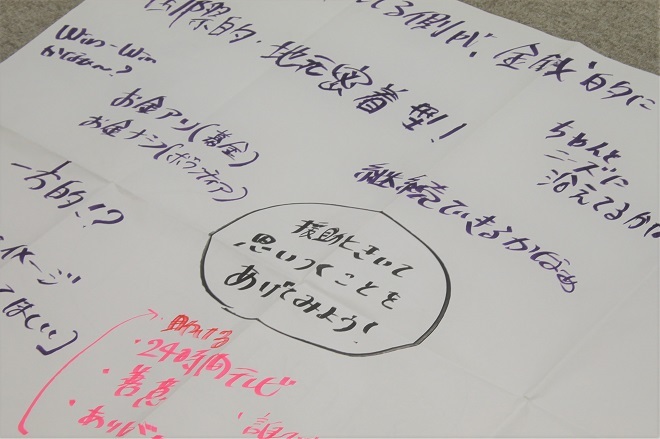 てる側が、金銭的に
国際的・地元密着型!
Win-Win
かなぁ〜?
お金アリ(募金)
お金ナシ(ボランティア)
ちゃんと
ニーズに
沿えてるか
継続できるかなぁ
一方的!?
イメージ
てほしい]
援助ときいて
思いつくことを
あげてみよう!
助ける
・24時間テレビ
・善意
・ありが